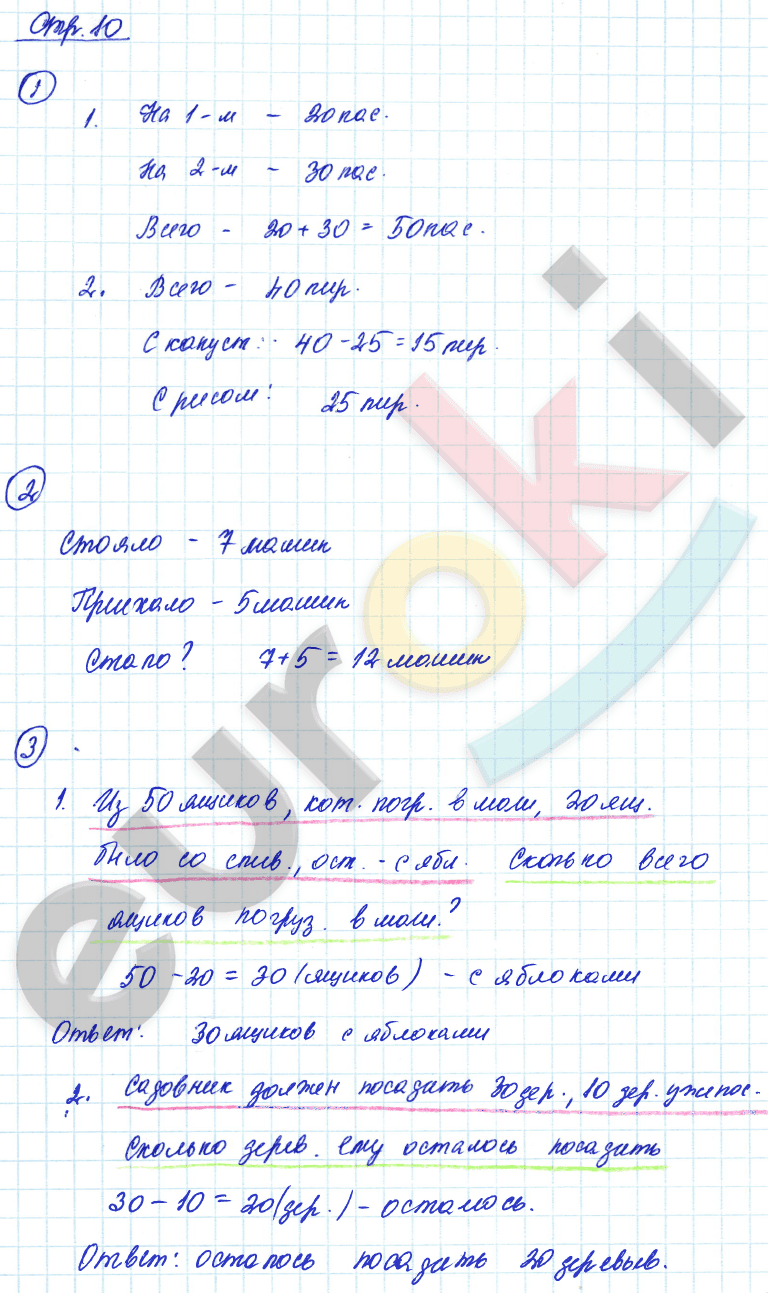 Стр. 10
1
1. На 1-м - 20 пас.
На 2-м - 30 пас.
Всего - 20 + 30 = 50 пас.
2. Всего - 40 пир.
С капуст: 40 - 25 = 15 пир.
С рисом: 25 пир.
2
Стояло - 7 машин
Приехало - 5 машин
Стало? 7 + 5 = 12 машин
3
1. Из 50 ящиков, кот. погр. в маш, 20 ящ.
было со слив., ост. - с ябл. Сколько всего
ящиков погруз. в маш.?
50 - 20 = 30 (ящиков) - с яблоками
Ответ: 30 ящиков с яблоками
2. Садовник должен посадить 30 дер., 10 дер. уже пос.
Сколько дерев. ему осталось посадить
30 - 10 = 20 (дер.) - осталось.
Ответ: осталось посадить 20 деревьев.
euroki